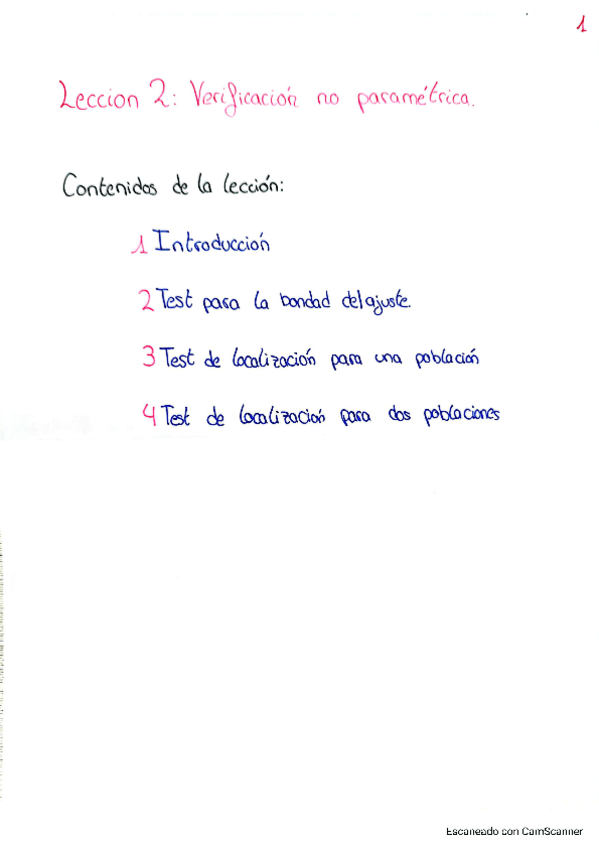 1
Leccion 2: Verificación no paramétrica.
Contenidos de la lección:
1 Introducción
2 Test para la bondad del ajuste.
3 Test de localización para una población
4 Test de localización para dos poblaciones
Escaneado con CamScanner